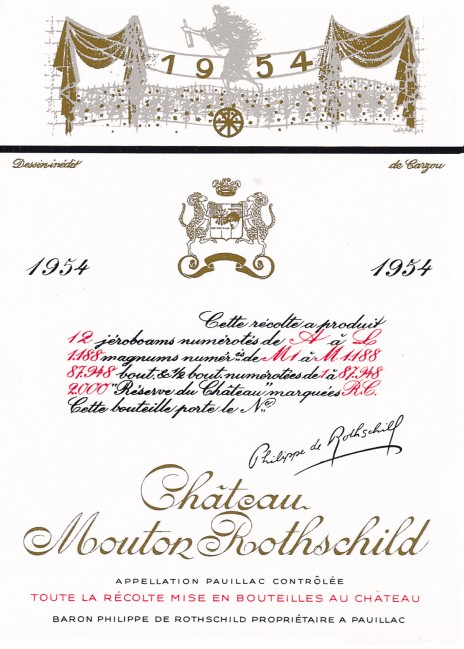 1954
Dessin inédit de Carzou
1954 1954
Cette récolte a produit
12 jéroboams numérotés de A à L
1.188 magnums numér.és de M1 à M1.188
87.948 bout. & ½ bout. numérotées de 1 à 87.948
2.000 "Réserve du Château" marquées R.C.
Cette bouteille porte le N.o
Philippe de Rothschild
Château
Mouton Rothschild
APPELLATION PAUILLAC CONTRÔLÉE
TOUTE LA RÉCOLTE MISE EN BOUTEILLES AU CHÂTEAU
BARON PHILIPPE DE ROTHSCHILD PROPRIÉTAIRE A PAUILLAC